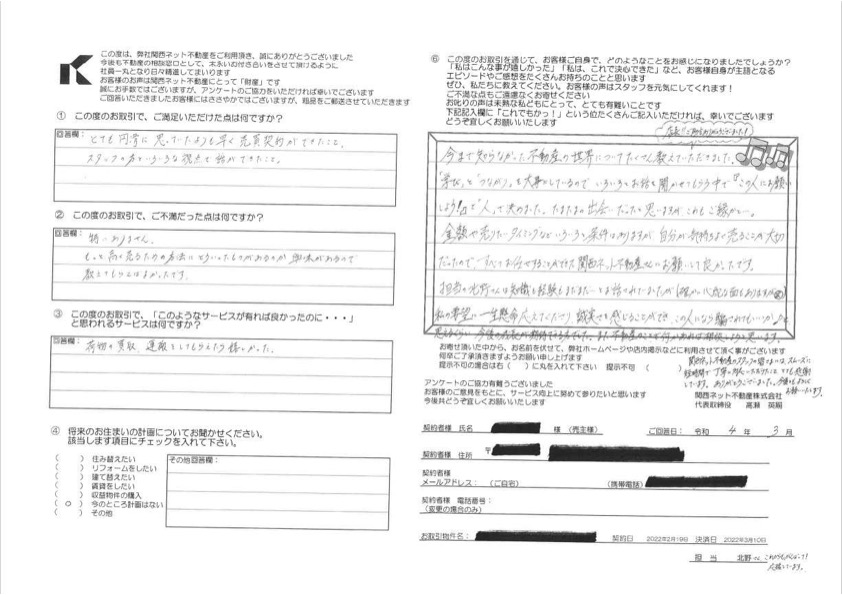 この度は、弊社関西ネット不動産をご利用頂き、誠にありがとうございました
今後も不動産の相談窓口として、末永いお付き合いをさせて頂けるように
社員一丸となり日々精進してまいります
お客様のお声は関西ネット不動産にとって「財産」です
誠にお手数ではございますが、アンケートのご協力をいただければ幸いでございます
ご回答いただきましたお客様にはささやかではございますが、粗品をご郵送させていただきます
① この度のお取引で、ご満足いただけた点は何ですか?
回答欄:とても円滑に思っていたよりも早く売買契約ができたこと。
スタッフの方といろいろな視点で話ができたこと。
② この度のお取引で、ご不満だった点は何ですか?
回答欄:特にありません。
もっと高く売るための方法にどういったものがあるのか興味があるので
教えてもらえればよかったです。
③ この度のお取引で、「このようなサービスが有れば良かったのに・・・」
と思われるサービスは何ですか?
回答欄:荷物の買取、運搬としてもらえたら嬉しかった。
④ 将来のお住まいの計画についてお聞かせください。
該当します項目にチェックを入れて下さい。
( ) 住み替えたい
( ) リフォームをしたい
( ) 建て替えたい
( ) 賃貸をしたい
( ) 収益物件の購入
( ○ ) 今のところ計画はない
( ) その他
その他回答欄:
⑥ この度のお取引を通じて、お客様ご自身で、どのようなことをお感じになりましたでしょうか?
「私はこんな事が嬉しかった」「私は、これで決心できた」など、お客様自身が主語となる
エピソードやご感想をたくさんお持ちのことと思います
ぜひ、私たちに教えてください。お客様の声はスタッフを元気にしてくれます!
ご不満な点もご遠慮なくお寄せください
お叱りの声は未熟な私どもにとって、とても有難いことです
下記記入欄に「これでもかっ!」という位たくさんご記入いただければ、幸いでございます
どうぞ宜しくお願いいたします
今まで知らなかった不動産の世界についてたくさん教えていただきました。
「学び」と「つながり」を大事としているのでいろいろとお話を聞かせてもらう中で『この人にお願い
しよう!』と"人"で決めました。たまたまの出会いだったと思いますがこれもご縁かと…。
金額や売りたいタイミングなどいろいろな条件はありますが自分が気持ちよく売ることが大切
だったので、すべてお任せすることができた関西ネット不動産さんにお願いして良かったです。
担当の北野さんは知識も経験もまだまだ…とお話されていましたが(確かに心配な面もありますが)
私の要望に一生懸命応えてくださり誠実さを感じることができ、この人になら騙されてもいいか
と思えるくらい今後の成長が期待できる方でした。また不動産のことで何かあれば相談しようと思います。
お寄せ頂いた中から、お名前を伏せて、弊社ホームページや店内掲示などに利用させて頂く事がございます
何卒ご了承頂きますようお願い申し上げます
提示不可の場合は右( )に丸を入れて下さい 提示不可 ( )
関西ネット不動産のスタッフの皆さまには、スムーズに
短時間で丁寧に対応いただけたこと とても感謝
しています。ありがとうございました。今後もよろしく
お願いいたします。
アンケートのご協力有難うございました
お客様のご意見をもとに、サービス向上に努めて参りたいと思います
今後共どうぞ宜しくお願いいたします
関西ネット不動産株式会社
代表取締役 高瀬 英明
契約者様 氏名 様 (売主様) ご回答日: 令和 4 年 3 月
契約者様 住所 〒
契約者様
メールアドレス: (ご自宅) (携帯電話)
契約者様 電話番号:
(変更の場合のみ)
お取引物件名: 契約日 2022年2月19日 決済日 2022年3月10日
担当 北野さん、これからもがんばって!
応援しています。